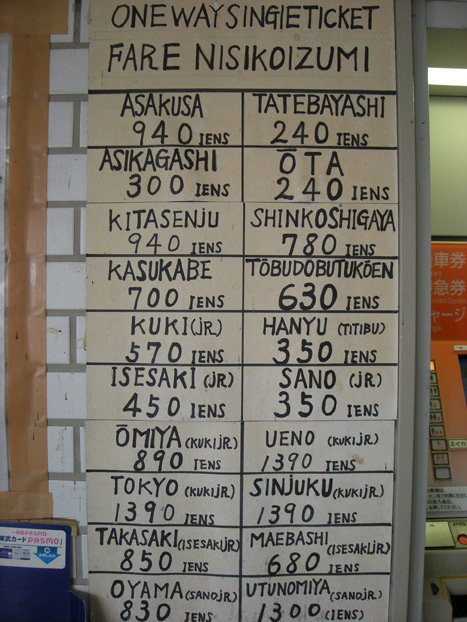 ONE WAY SINGIE TICKET
FARE NISIKOIZUMI
ASAKUSA
940 IENS
TATEBAYASHI
240 IENS
ASIKAGASHI
300 IENS
ŌTA
240 IENS
KITASENJU
940 IENS
SHINKOSHIGAYA
780 IENS
KASUKABE
700 IENS
TŌBUDOBUTUKŌEN
630 IENS
KUKI (JR.)
570 IENS
HANYU (TITIBU)
350 IENS
ISESAKI (JR.)
450 IENS
SANO (JR.)
350 IENS
ŌMIYA (KUKIJR.)
890 IENS
UENO (KUKIJR.)
1390 IENS
TOKYO (KUKIJR.)
1390 IENS
SINJUKU (KUKIJR.)
1390 IENS
TAKASAKI (ISESAKIJR.)
850 IENS
MAEBASHI (ISESAKIJR.)
680 IENS
OYAMA (SANOJR.)
830 IENS
UTUNOMIYA (SANOJR.)
1300 (IENS)
車券
急券
ャージ
スイカ
東武カード PASMO